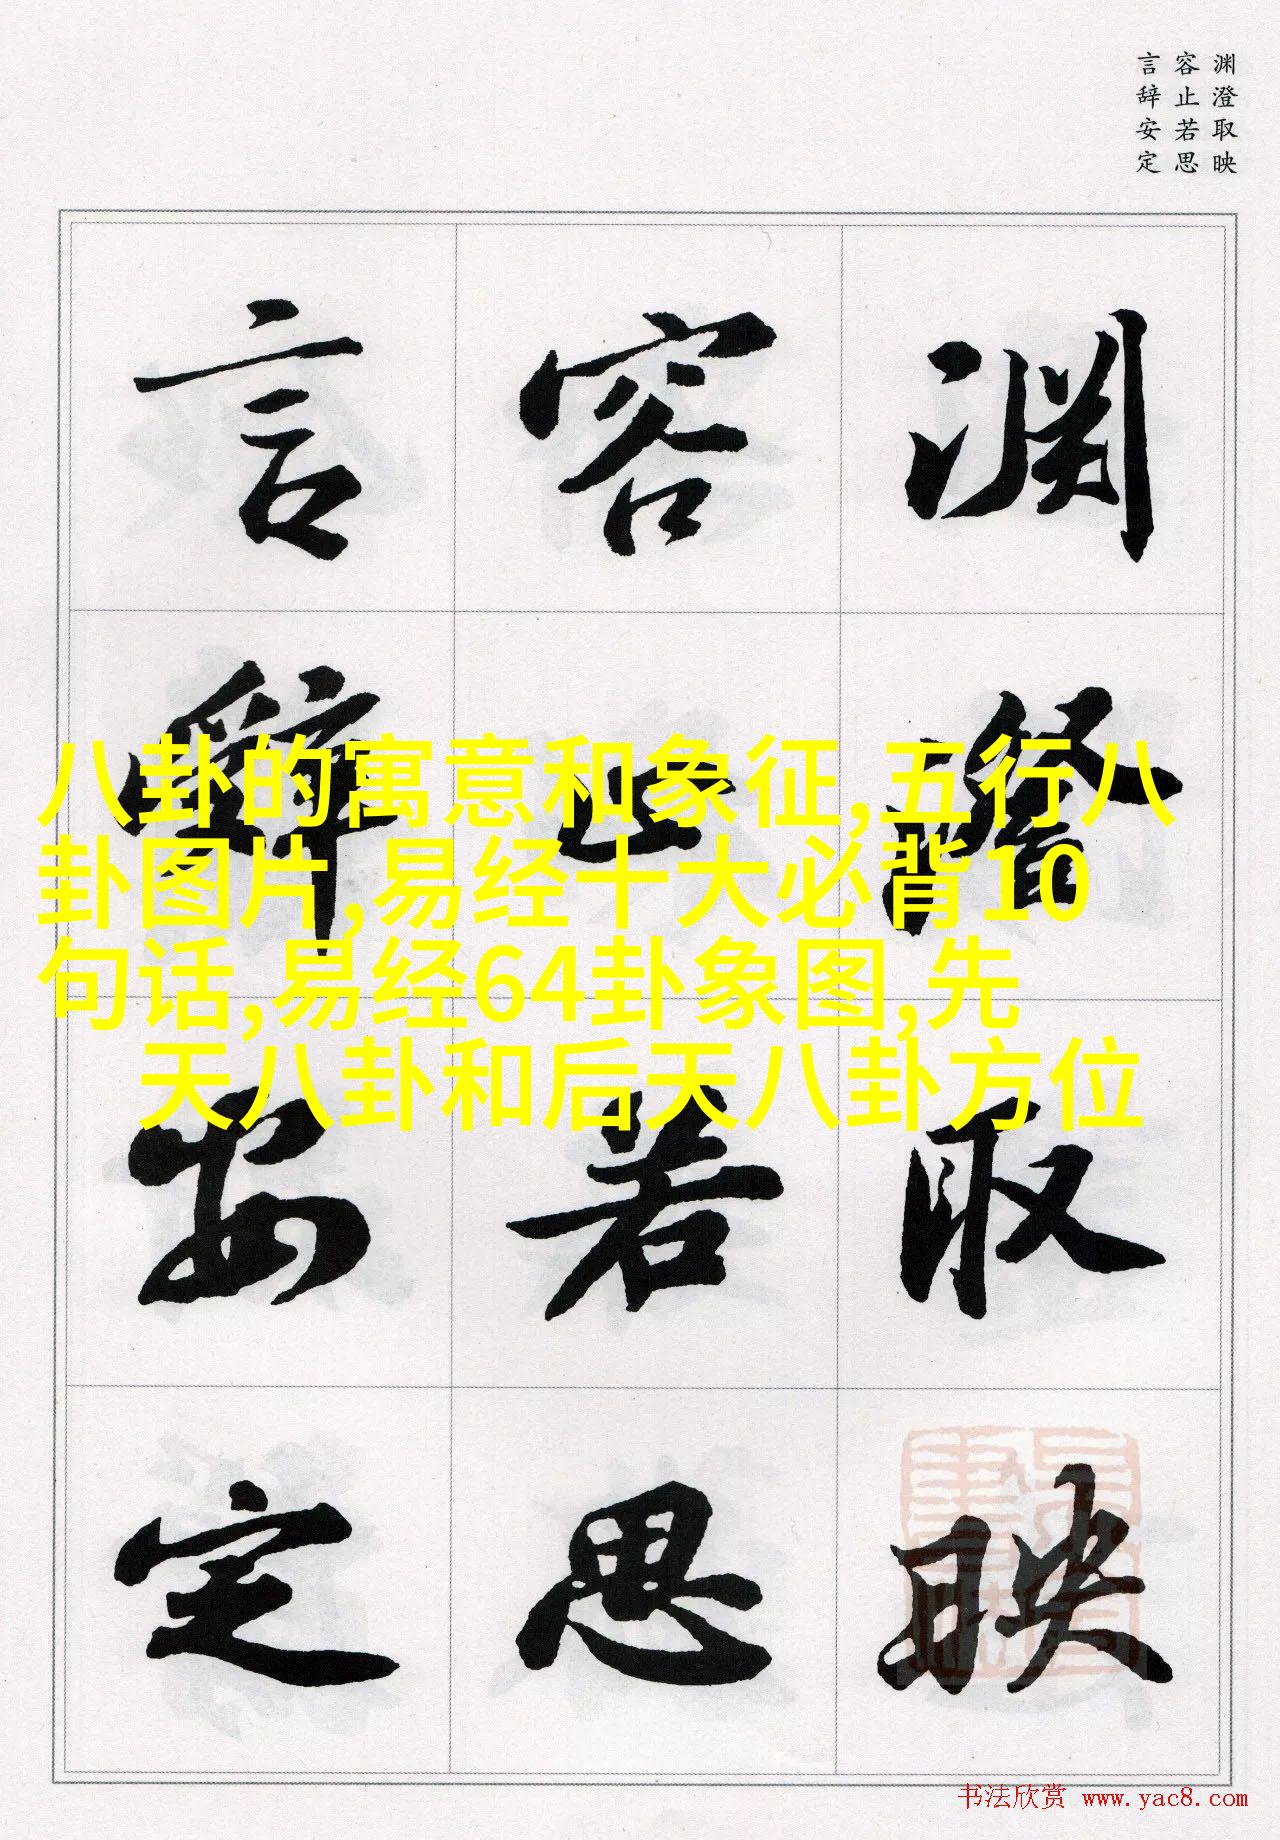 渊澄取映
容止若思
言辞安定
渊澄取映
容止若思
言辞安定
八卦的寓意和象征,五行八
卦图片,易经十大必背10
句话,易经64卦象图,先
天八卦和后天八卦方位
书法欣赏 www.yac8.com